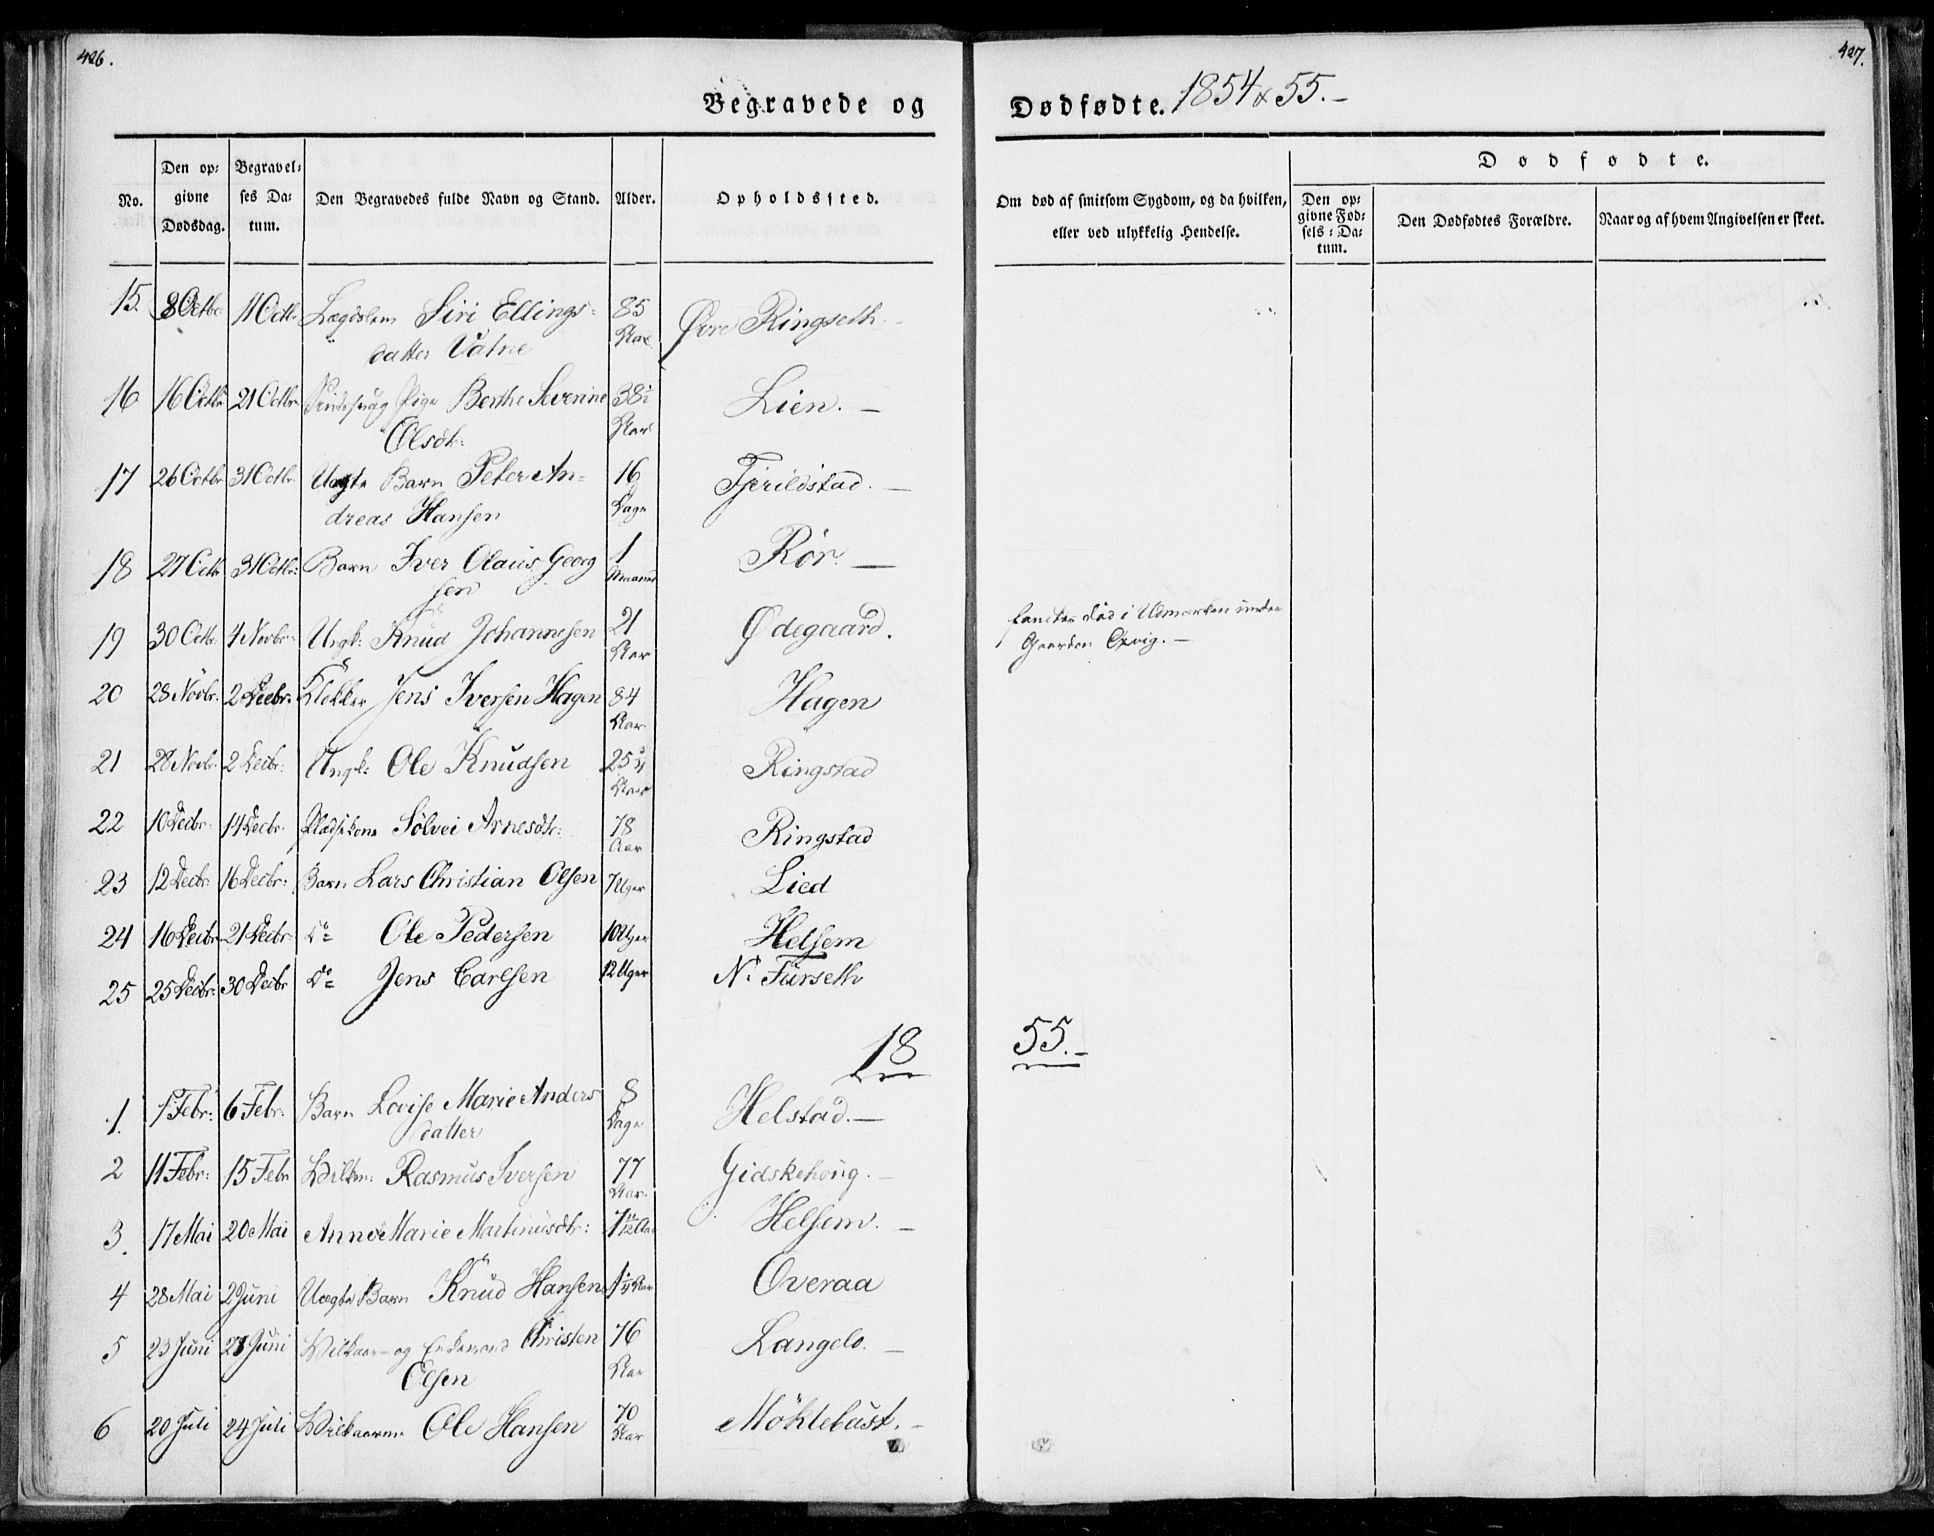 426.
427.
Begravede og
Dødfødte. 1854 & 55.-
No.
Den op-
givne
Dødsdag.
Begravel-
ses Da-
tum.
Den Begravedes fulde Navn og Stand.
Alder.
Opholdssted.
Om død af smitsom Sygdom, og da hvilken,
eller ved ulykkelig Hendelse.
Dødfødte.
Den op-
givne Fød-
sels-Da-
tum.
Den Dødfødtes Forældre.
Naar og af hvem Angivelsen er skeet.
15. 8 Octbr 11 Octbr Lægdslem Siri Ellings- 85 Øvre Ringseth.-
datter Vatne Aar
16 16 Octbr 21 Octbr Pige Berthe Severine 38½ Lien.-
Olsdtr: Aar
17 26 Octbr 31 Octbr. Uægte Barn Peter An- 16 Fjerildstad.-
dreas Hansen Dage
18 27 Octbr 31 Octbr: Barn Iver Olaus Georg 1 Rör.-
sen Maaned
19 30 Octbr. 4 Novbr: Ungk: Knud Johannesen 21 Ødegaard. fandtes død i Udmarken under
Aar Gaarden Opvig.-
20 28 Novbr. 2 Decbr. Klokker Jens Iversen Hagen 84 Hagen
Aar
21 28 Novbr. 2 Decbr: Ungk: Ole Knudsen 25 Ringstad
Aar
22 10 Decbr. 14 Decbr. Pladskone Sölvei Arnesdtr: 78 Ringstad
Aar
23 12 Decbr. 16 Decbr: Barn Lars Christian Olsen 7 Uger Lied
24 16 Decbr 21 Decbr Do Ole Pedersen 10 Uger Helsem
25 25 Decbr: 30 Decbr Do Jens Carlsen 12 Uger N. Furseth
18 55.-
1. 1 Febr: 6 Febr. Barn Lovise Marie Anders 8 Helstad.-
datter Dage
2 11 Febr: 15 Febr Vilkm: Rasmus Iversen 77 Gidskehoug.-
Aar.
3. 17 Mai 20 Mai Anne Marie Martinusdtr: Helsem.-
4 28 Mai 2 Juni Uægte Barn Knud Hansen Overaa
5 23 Juni 28 Juni Vilkaar- og Enkemand Christen 76 Langelo.-
Olsen Aar
6 20 Juli 24 Juli Vilkaarm: Ole Hansen 70 Möklebust.-
Aar